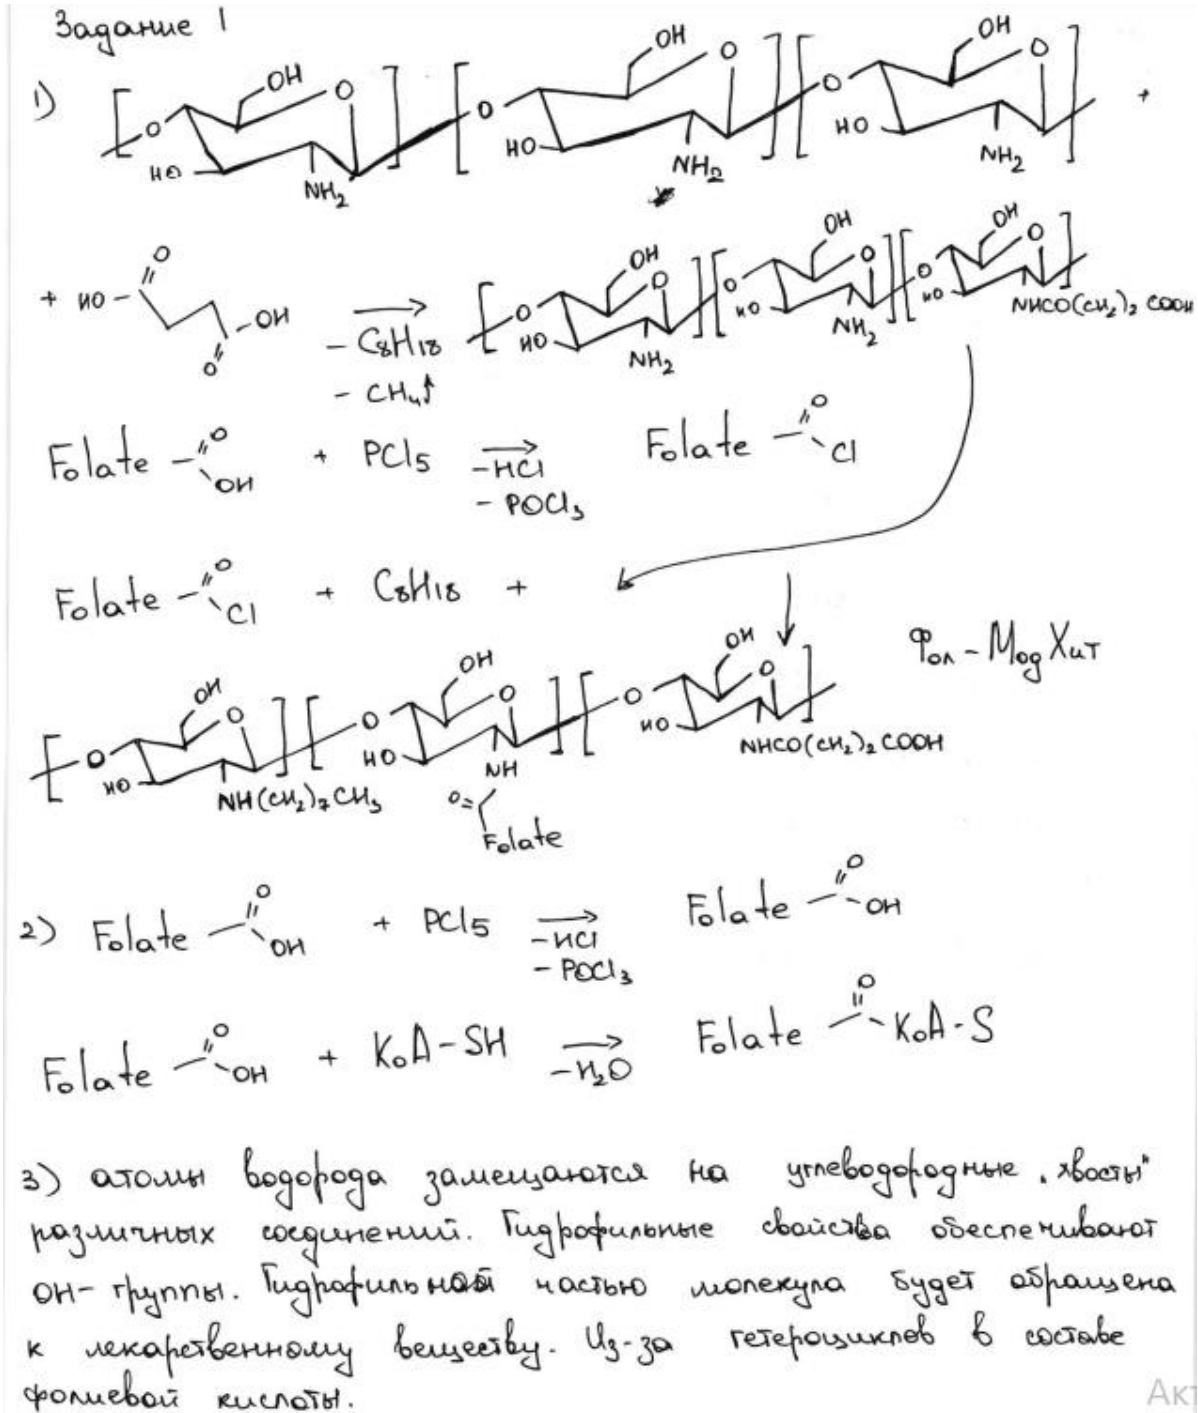 Задание 1
1) [ O HO OH O NH2 ] [ O HO OH O NH2 ] [ O HO OH O NH2 ] +
+ HO O O OH → - C8H18 - CH4↑ [ O HO OH O NH2 ] [ O HO OH O NH2 ] [ O HO OH O NHCO(CH2)2COOH ]
Folate O OH + PCl5 → -HCl - POCl3 Folate O Cl
Folate O Cl + C8H18 +
Фол-МодХит
[ O HO OH O NH(CH2)7CH3 ] [ O HO OH O NH O= Folate ] [ O HO OH O NHCO(CH2)2COOH ]
2) Folate O OH + PCl5 → -HCl - POCl3 Folate O OH
Folate O OH + KoA-SH → -H2O Folate O KoA-S
3) атомы водорода замещаются на углеводородные „хвосты"
различных соединений. Гидрофильные свойства обеспечивают
OH- группы. Гидрофильной частью молекула будет обращена
к лекарственному веществу. Из-за гетероциклов в составе
фолиевой кислоты.
Ак